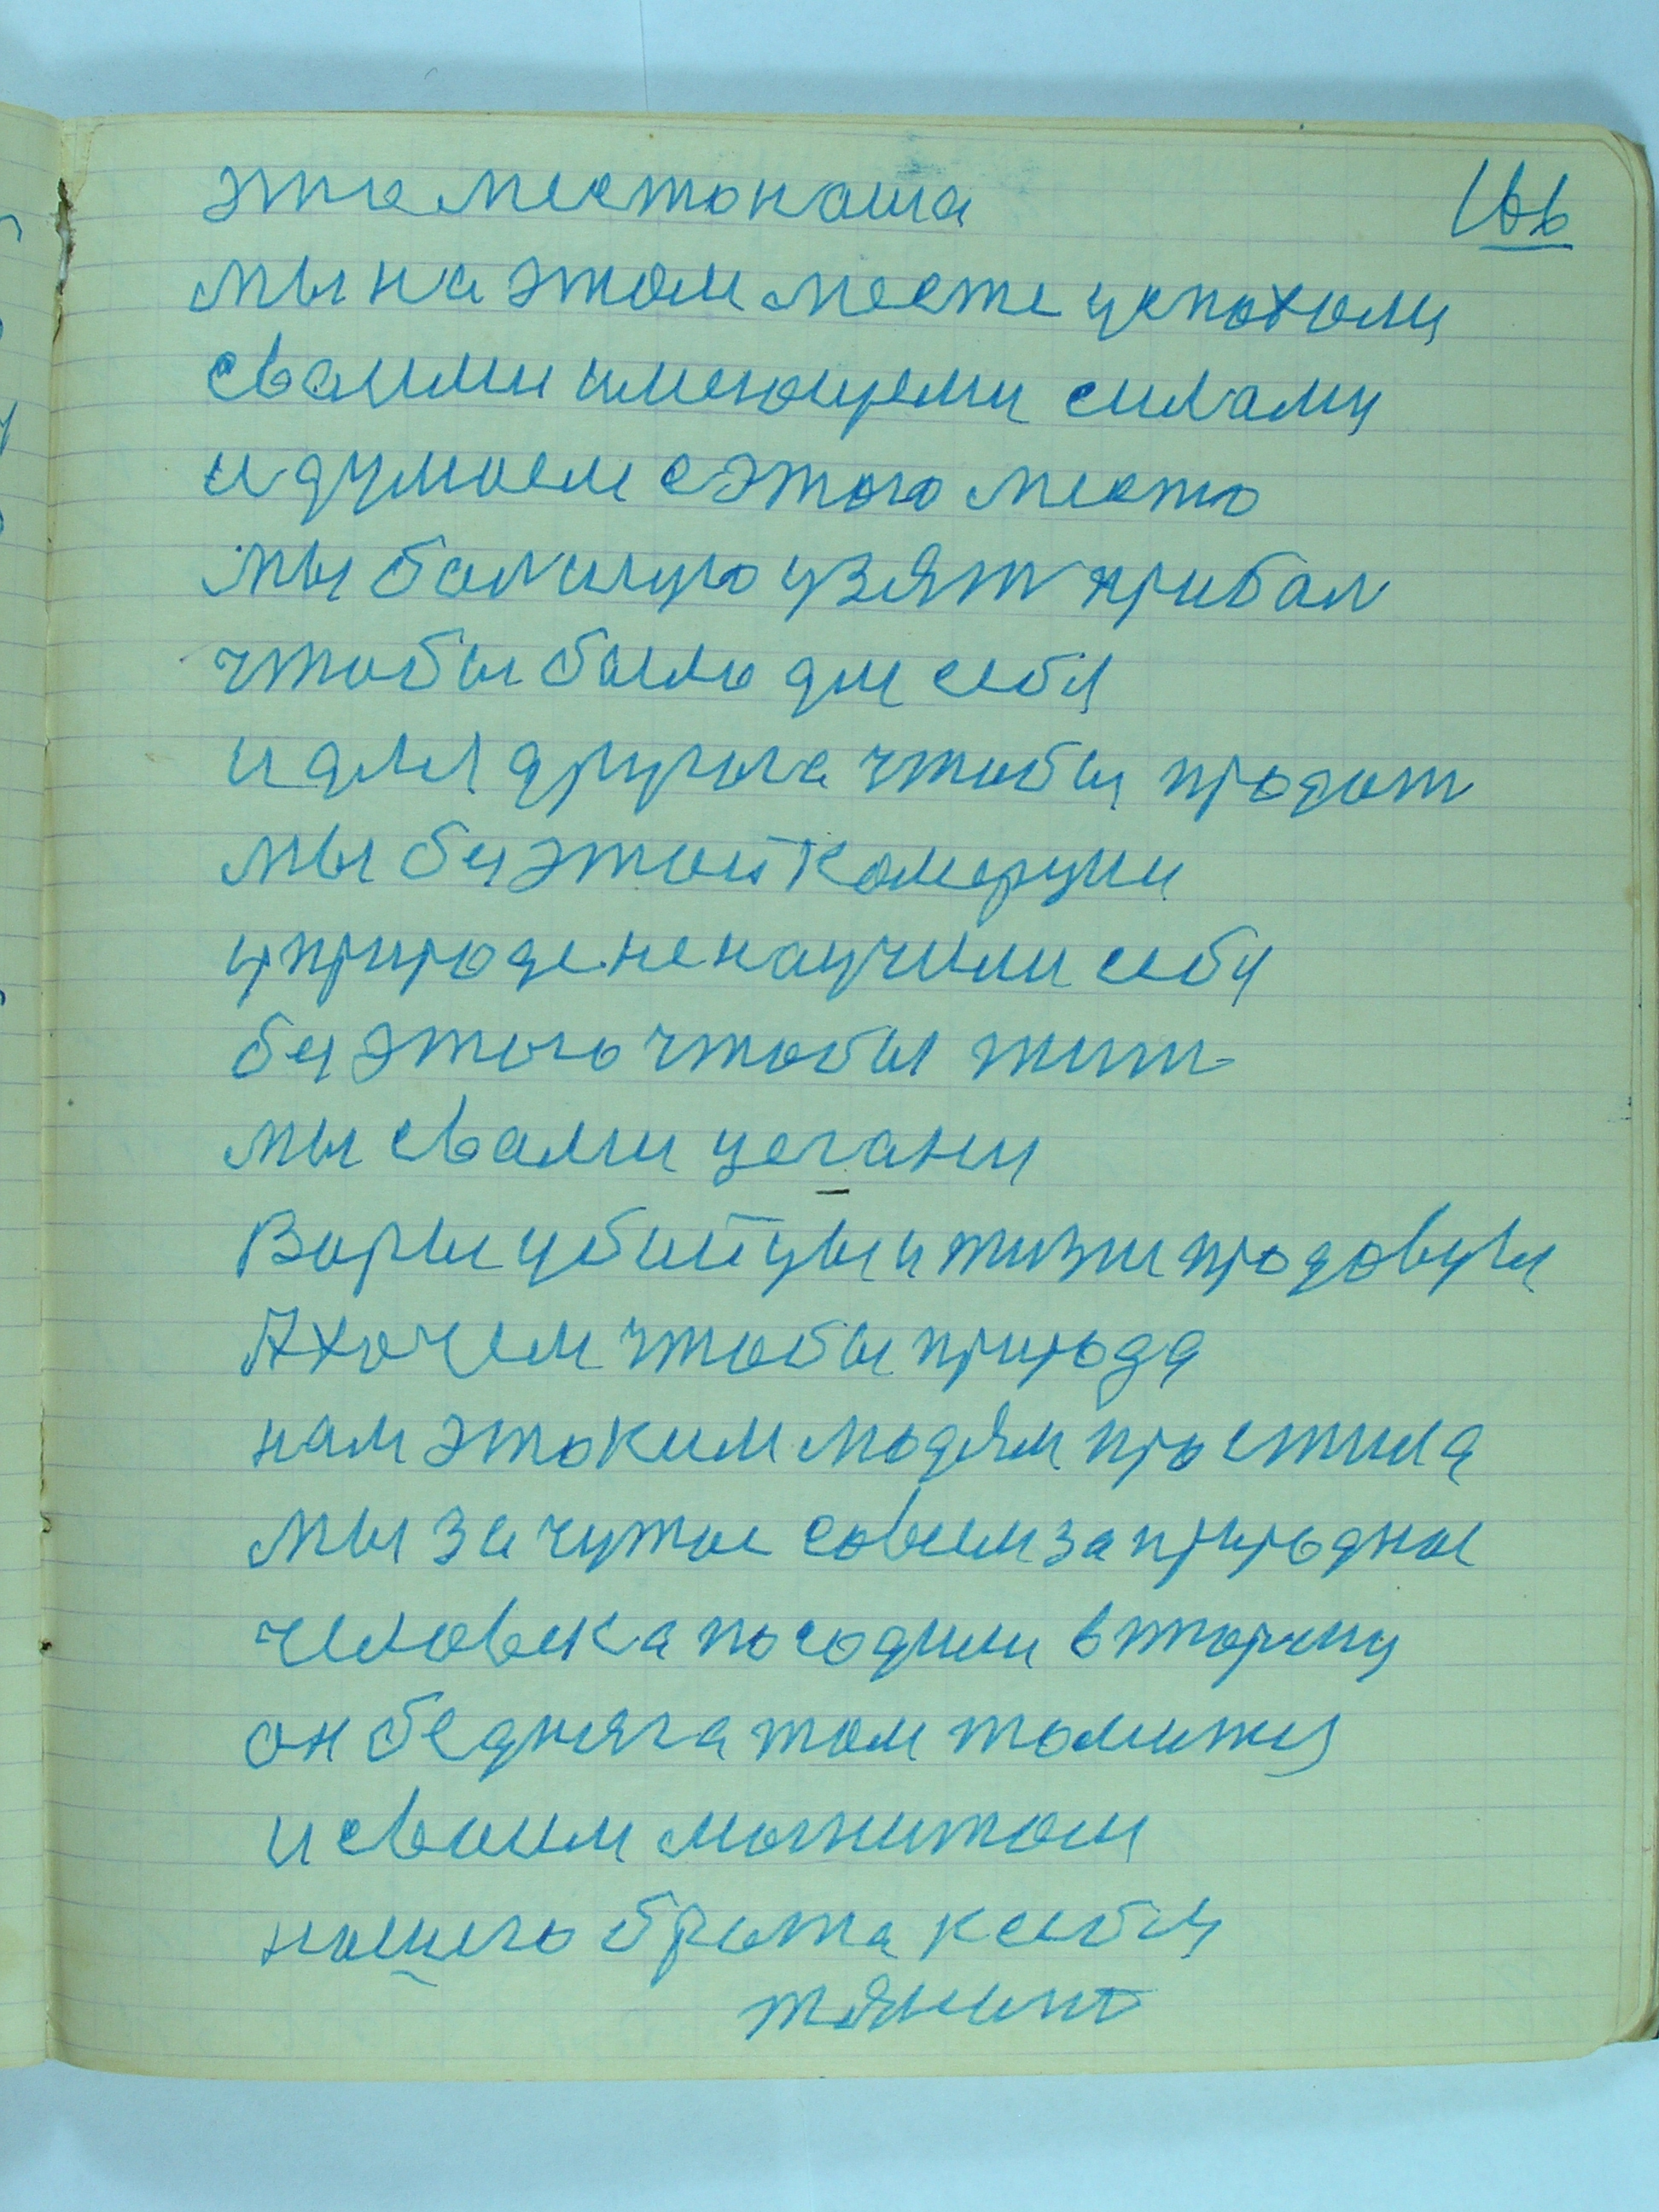 166
это место наша
мы на этом месте успохоли
сваими имеющеми силами
и думаем с этого место
мы болшую узят прибал
чтобы было для себя
и для другога чтобы продат
мы без этой комерции
у природе не научили себя
без этого чтобы жит
мы с вами цегани
Воры убийцы и жизни продовцы
А хочем чтобы природа
нам этоким людям простила
мы за чужое совсем за природное
человека посодили в тюрму
он бедняга там томится
и сваим могнитом
нашего брата к себя
тянит